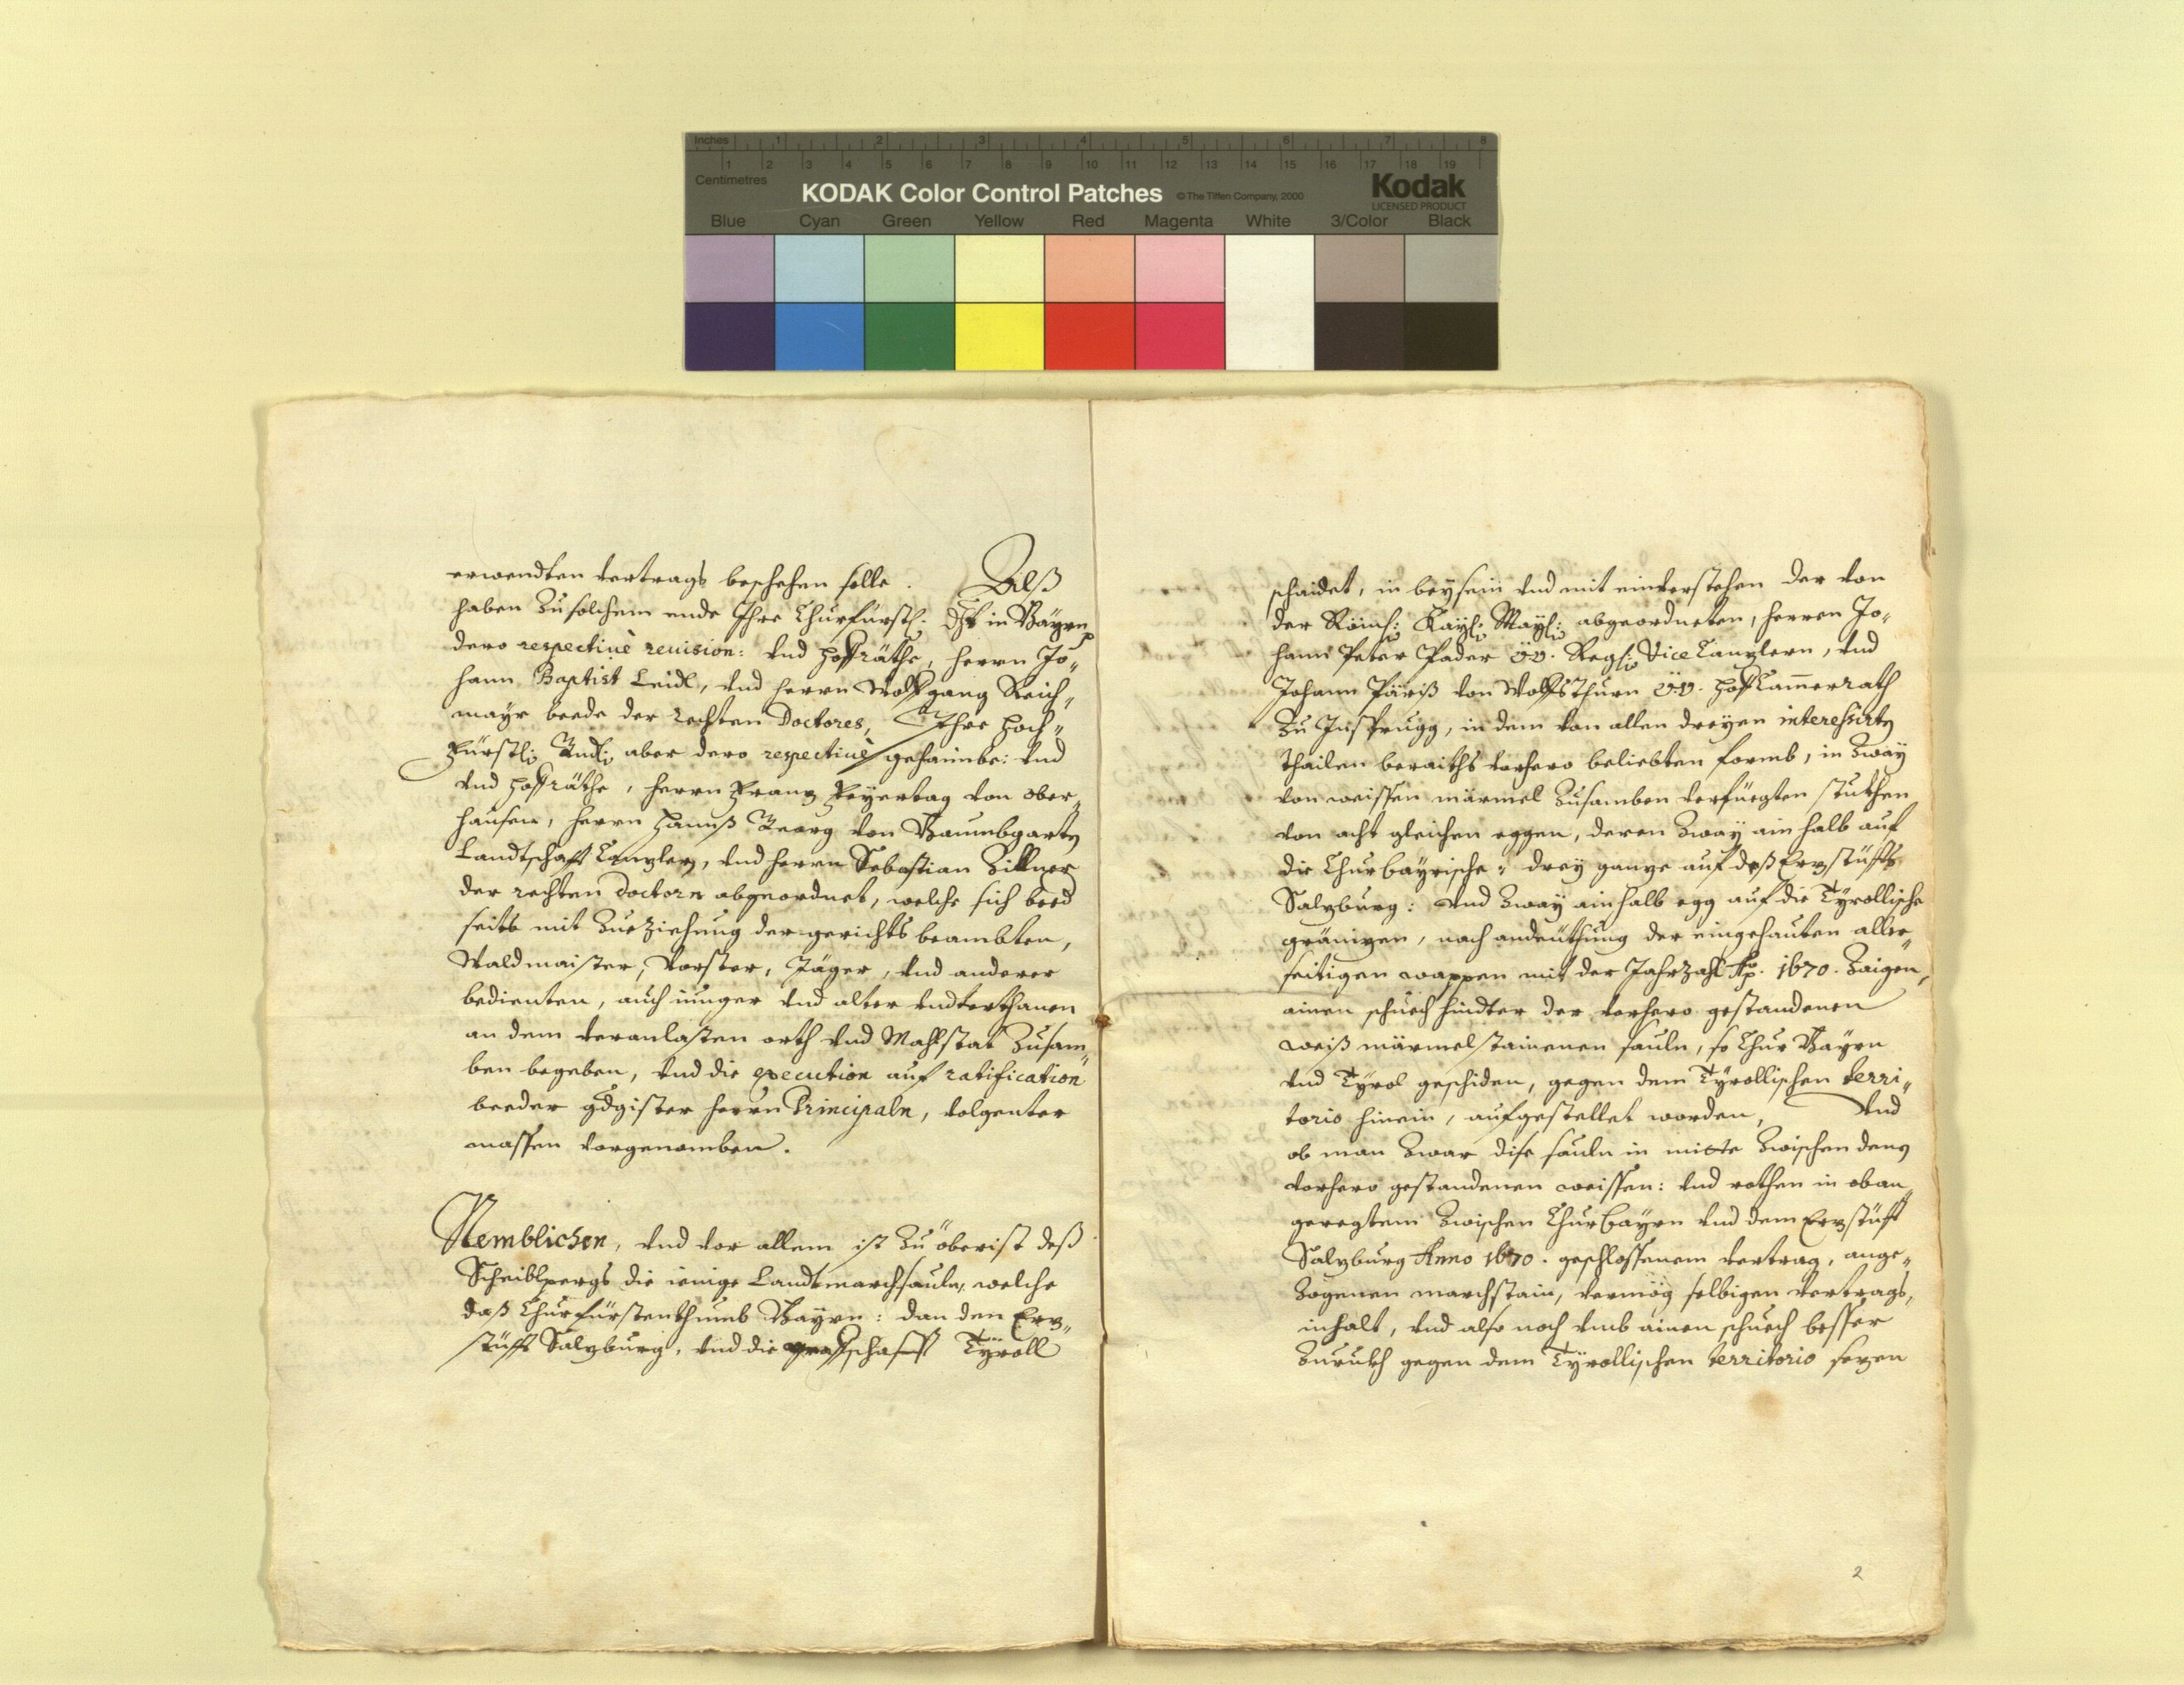 Inches 1 2 3 4 5 6 7 8
1 2 3 4 5 6 7 8 9 10 11 12 13 14 15 16 17 18 19
Centimetres
KODAK Color Control Patches © The Tiffen Company, 2000 Kodak
LICENSED PRODUCT
Blue Cyan Green Yellow Red Magenta White 3/Color Black
erwendten vertrags beschehen solle. Alß
haben zu solchem ende Ihre Churfürstl: Dht in Bäyrn
dero respectiuè reuision: vnd Hoffräthe, herrn Jo„
hann Baptist Leidl, vnd herrn Wolfgang Reich„
mayr beede der rechten Doctores, Ihre Hoch„
Fürstl: Gnd: aber dero respectiuè gehaimbe: vnd
vnd Hoffräthe, herrn Franz Feÿertag von Ober„
hausen, herrn Hannß Georg von Baumbgartn
Landtschafft Canzlern, vnd herrn Sebastian Zillner
der rechten Doctorn abgeordnet, welche sich beed
seits mit Zueziehung der gerichts beambten,
Waldmaister, Vorster, Jäger, vnd anderer
bedienten, auch iunger vnd alter vndterthanen
an dem veranlasten orth vnd Mahlstat Zusam„
ben begeben, vnd die execution auf ratification
beeder gdgister herrn Principaln, volgenter
massen vorgenomben.
Nemblichen, vnd vor allem ist Zu öberist deß
Scheiblpergs die ienige Landtmarchsauln, welche
daß Churfürstenthumb Bayrn: dan den Erz„
stüfft Salzburg, vnd die graffschafft Tÿroll
schaidet, in beysein vnd mit einverstehen der von
der Röm: Kayl: Mayl: abgeordneten, herren Jo„
hann Peter Pader ÖÖ. Reg: Vice Canzlern, vnd
Johann Päriß von Wolffsthurn ÖÖ. Hoff Cammerrath
Zu Insprugg, in dem von allen dreyen interessirtn
thailen beraiths vorhero beliebten formb, in Zway
von weissen märmel Zusamben verfüegten stukhen
von acht gleichen eggen, deren Zway ain halb auf
die Churbayrische: drey ganze auf deß Erzstüffts
Salzburg: vnd Zway ain halb egg auf die Tÿrollische
gränizen, nach andeüthung der eingehauten aller„
seitigen wappen mit der Jahrzahl Ao. 1670. Zaigen,
ainen schuech hindter der vorhero gestandenen
weiß märmelstainenen sauln, so Chur Bayrn
vnd Tÿrol geschiden, gegen dem Tÿrollischen terri„
torio hinein, aufgestellet worden, Vnd
ob man Zwar dise sauln in mitte Zwischen denen
vorhero gestandenen weissen: vnd rothen in oban„
geregtem Zwischen Churbayrn vnd dem Erzstüfft
Salzburg Anno 1670. geschlossenem vertrag, ange„
Zogenen marchstain, vermög selbigen vertrags,
inhalt, vnd also noch vmb ainen schuech besser
Zurukh gegen dem Tÿrollischen territorio sezen
2